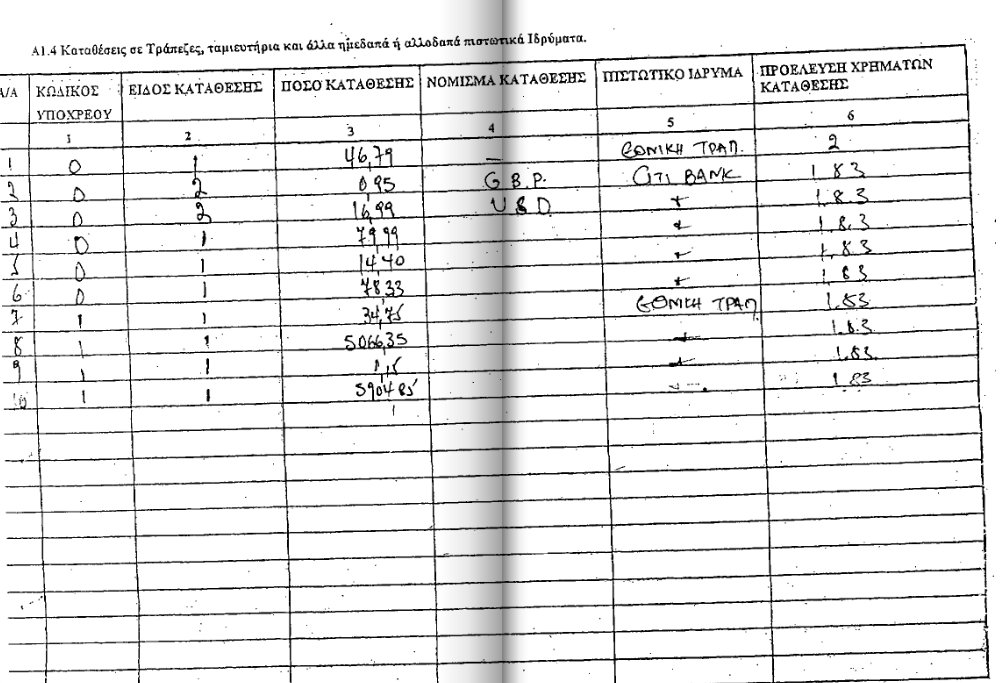 Α1.4 Καταθέσεις σε Τράπεζες, ταμιευτήρια και άλλα ημεδαπά ή αλλοδαπά πιστωτικά Ιδρύματα.
Α/Α ΚΩΔΙΚΟΣ ΥΠΟΧΡΕΟΥ ΕΙΔΟΣ ΚΑΤΑΘΕΣΗΣ ΠΟΣΟ ΚΑΤΑΘΕΣΗΣ ΝΟΜΙΣΜΑ ΚΑΤΑΘΕΣΗΣ ΠΙΣΤΩΤΙΚΟ ΙΔΡΥΜΑ ΠΡΟΕΛΕΥΣΗ ΧΡΗΜΑΤΩΝ ΚΑΤΑΘΕΣΗΣ
1 2 3 4 5 6
1 0 1 46,79 — ΕΘΝΙΚΗ ΤΡΑΠ. 2
2 0 2 0,95 G.B.P. CITI BANK 1.83
3 0 2 16,99 U S D 1.83
4 0 1 79,99 1.83
5 0 1 14,40 1.83
6 0 1 78,33 1.83
7 1 1 34,75 ΕΘΝΙΚΗ ΤΡΑΠ 1.83
8 1 1 5066,35 1.83
9 1 1 1,15 1.83
10 1 1 5904,85 1.83